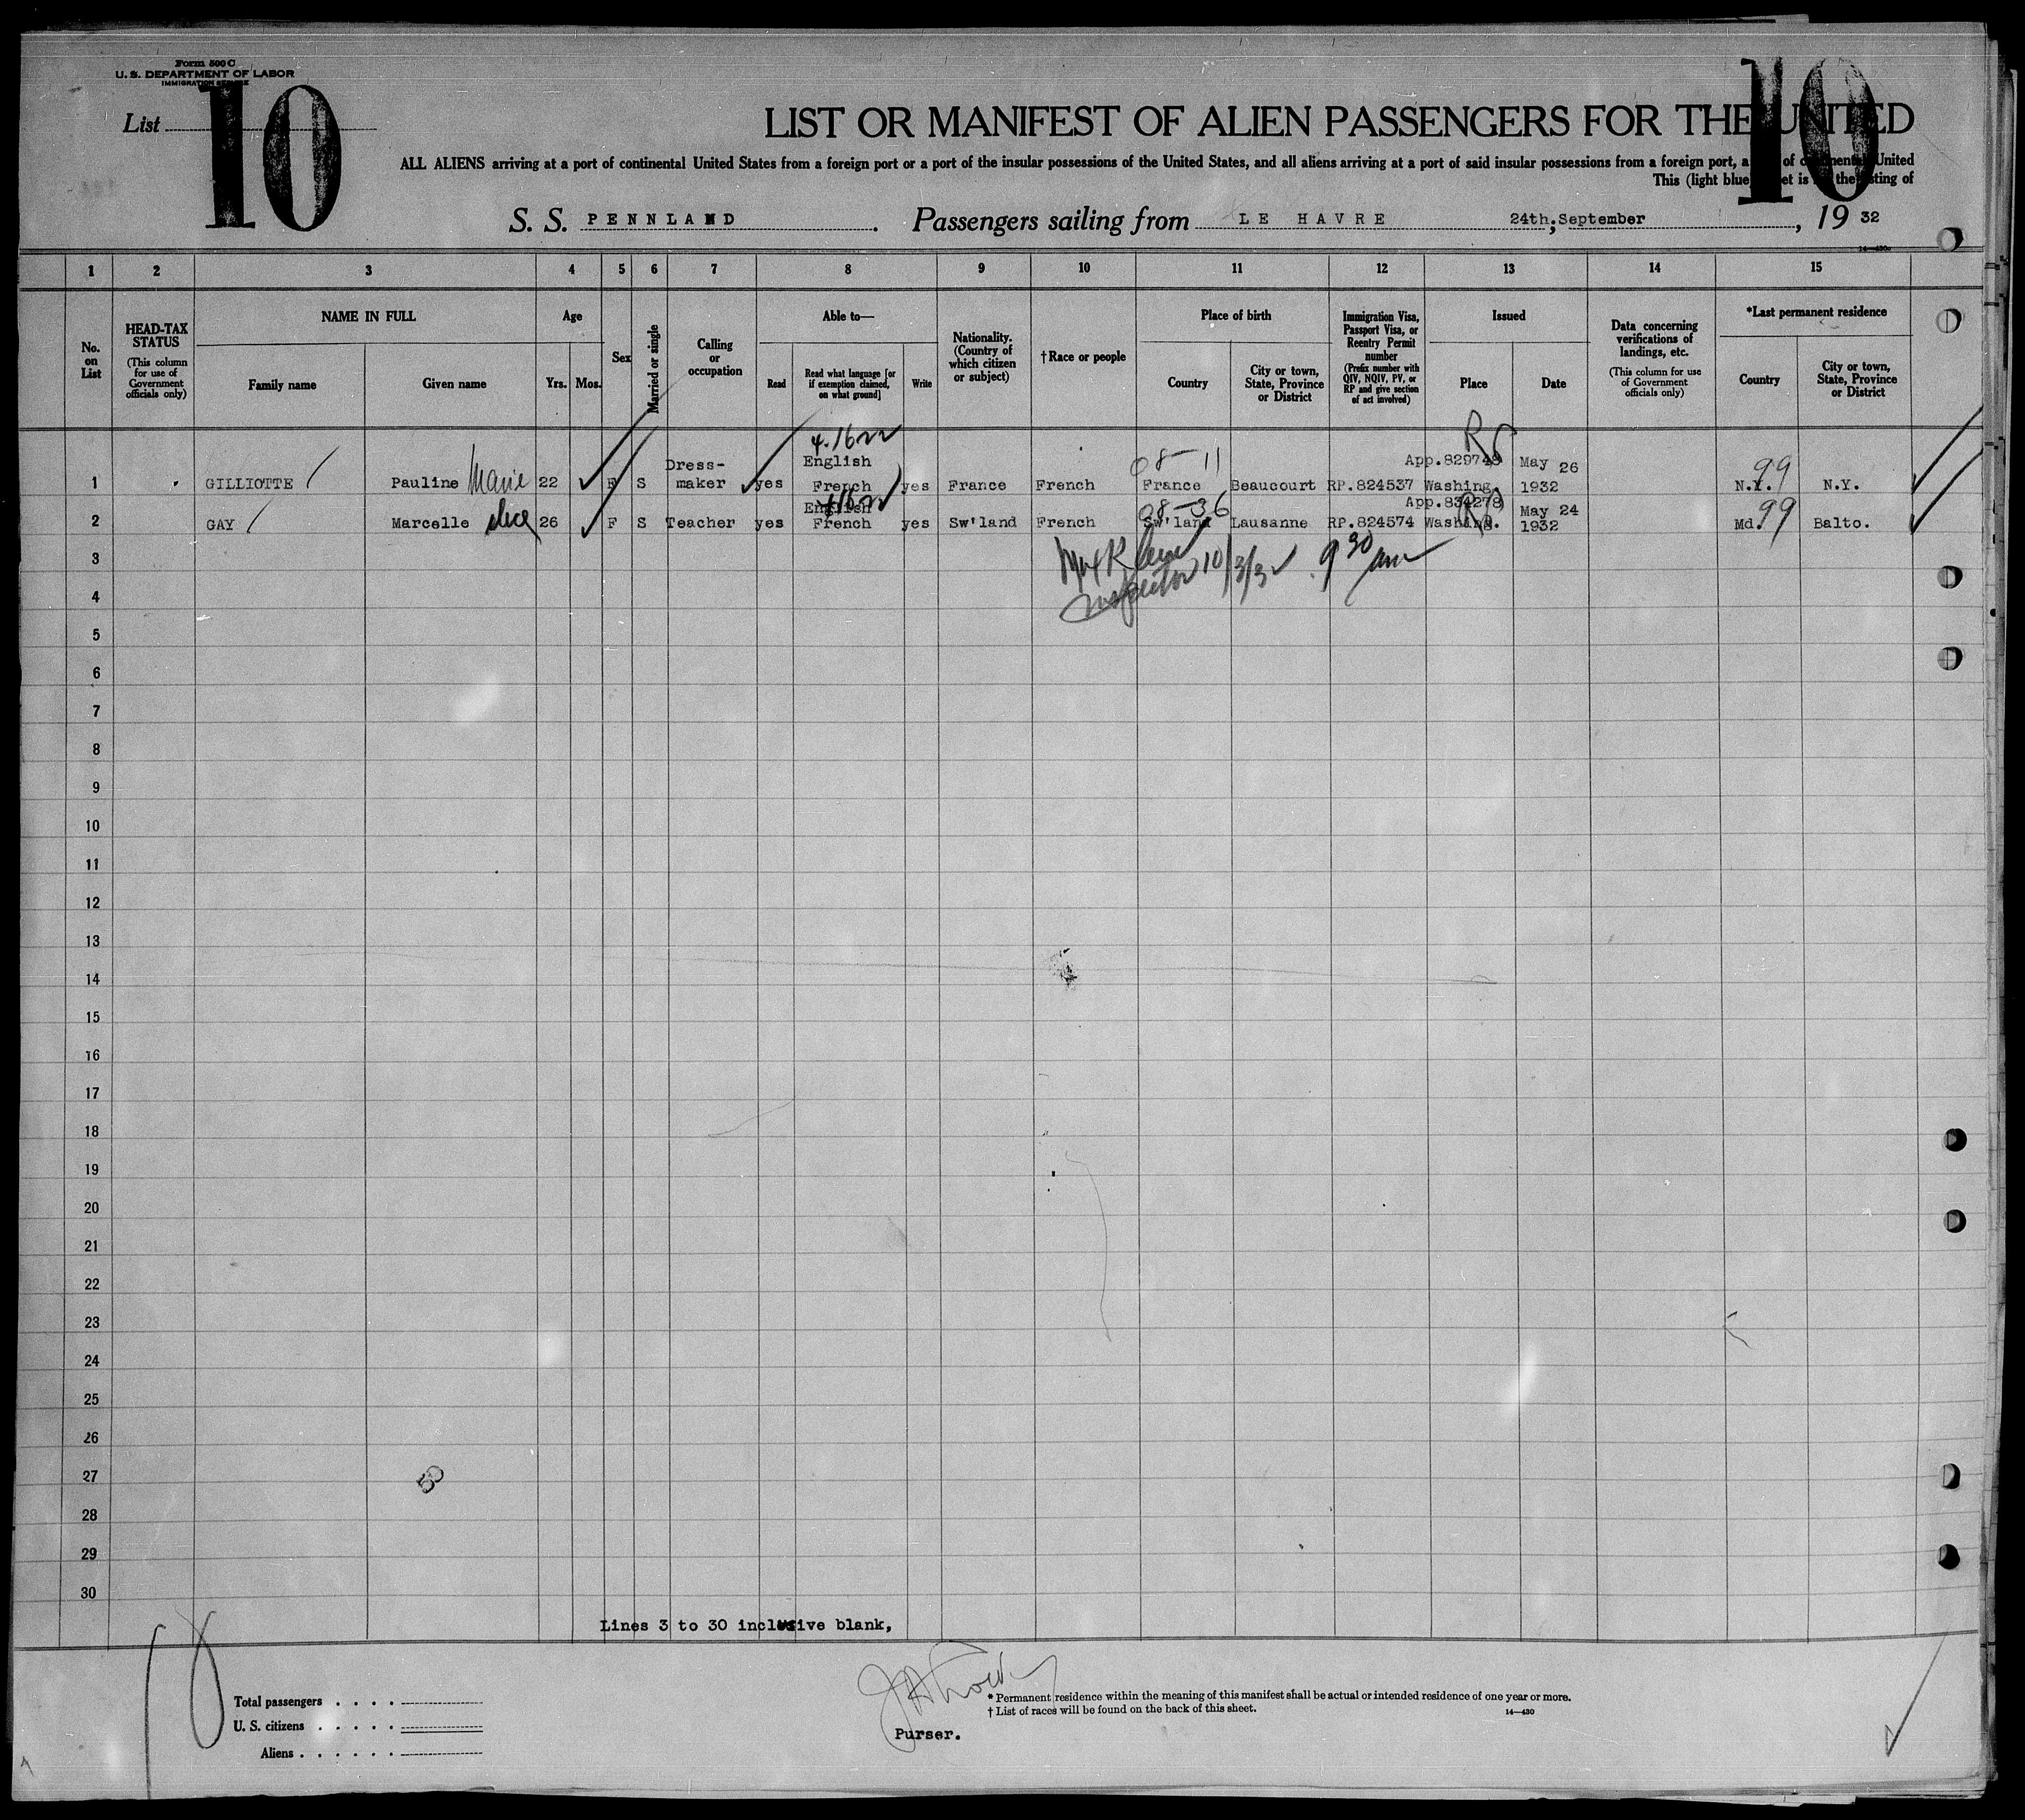 Form 500 C
U. S. DEPARTMENT OF LABOR
IMMIGRATION SERVICE
List 10
10
LIST OR MANIFEST OF ALIEN PASSENGERS FOR THE UNITED
ALL ALIENS arriving at a port of continental United States from a foreign port or a port of the insular possessions of the United States, and all aliens arriving at a port of said insular possessions from a foreign port, a of continental United
This (light blue) sheet is the listing of
S. S. PENNLAND. Passengers sailing from LE HAVRE 24th; September, 19 32
14—430
1 2 3 4 5 6 7 8 9 10 11 12 13 14 15
No. on List
HEAD-TAX STATUS
(This column for use of Government officials only)
NAME IN FULL
Family name
Given name
Age
Yrs. Mos.
Sex
Married or single
Calling or occupation
Able to—
Read
Read what language [or if exemption claimed, on what ground]
Write
Nationality. (Country of which citizen or subject)
†Race or people
Place of birth
Country
City or town, State, Province or District
Immigration Visa, Passport Visa, or Reentry Permit number
(Prefix number with QIV, NQIV, PV, or RP and give section of act involved)
Issued
Place
Date
Data concerning verifications of landings, etc.
(This column for use of Government officials only)
*Last permanent residence
Country
City or town, State, Province or District
4.16 RP
Dress- English 08-11 App.829748 May 26 99
1 GILLIOTTE Pauline Marie 22 F S maker yes French yes France French France Beaucourt RP.824537 Washing. 1932 N.Y. N.Y.
English 08-36 App.834278 RP May 24 99
2 GAY Marcelle Alice 26 F S Teacher yes French yes Sw'land French Sw'land Lausanne RP.824574 Washing. 1932 Md. Balto.
3 Max
4 Inspector 10/3/32 9 30 am
5
6
7
8
9
10
11
12
13
14
15
16
17
18
19
20
21
22
23
24
25
26
27
28
29
30
Lines 3 to 30 inclusive blank,
Total passengers . . . .
U. S. citizens . . . . .
Aliens . . . . . .
Purser.
* Permanent residence within the meaning of this manifest shall be actual or intended residence of one year or more.
† List of races will be found on the back of this sheet.
14—430